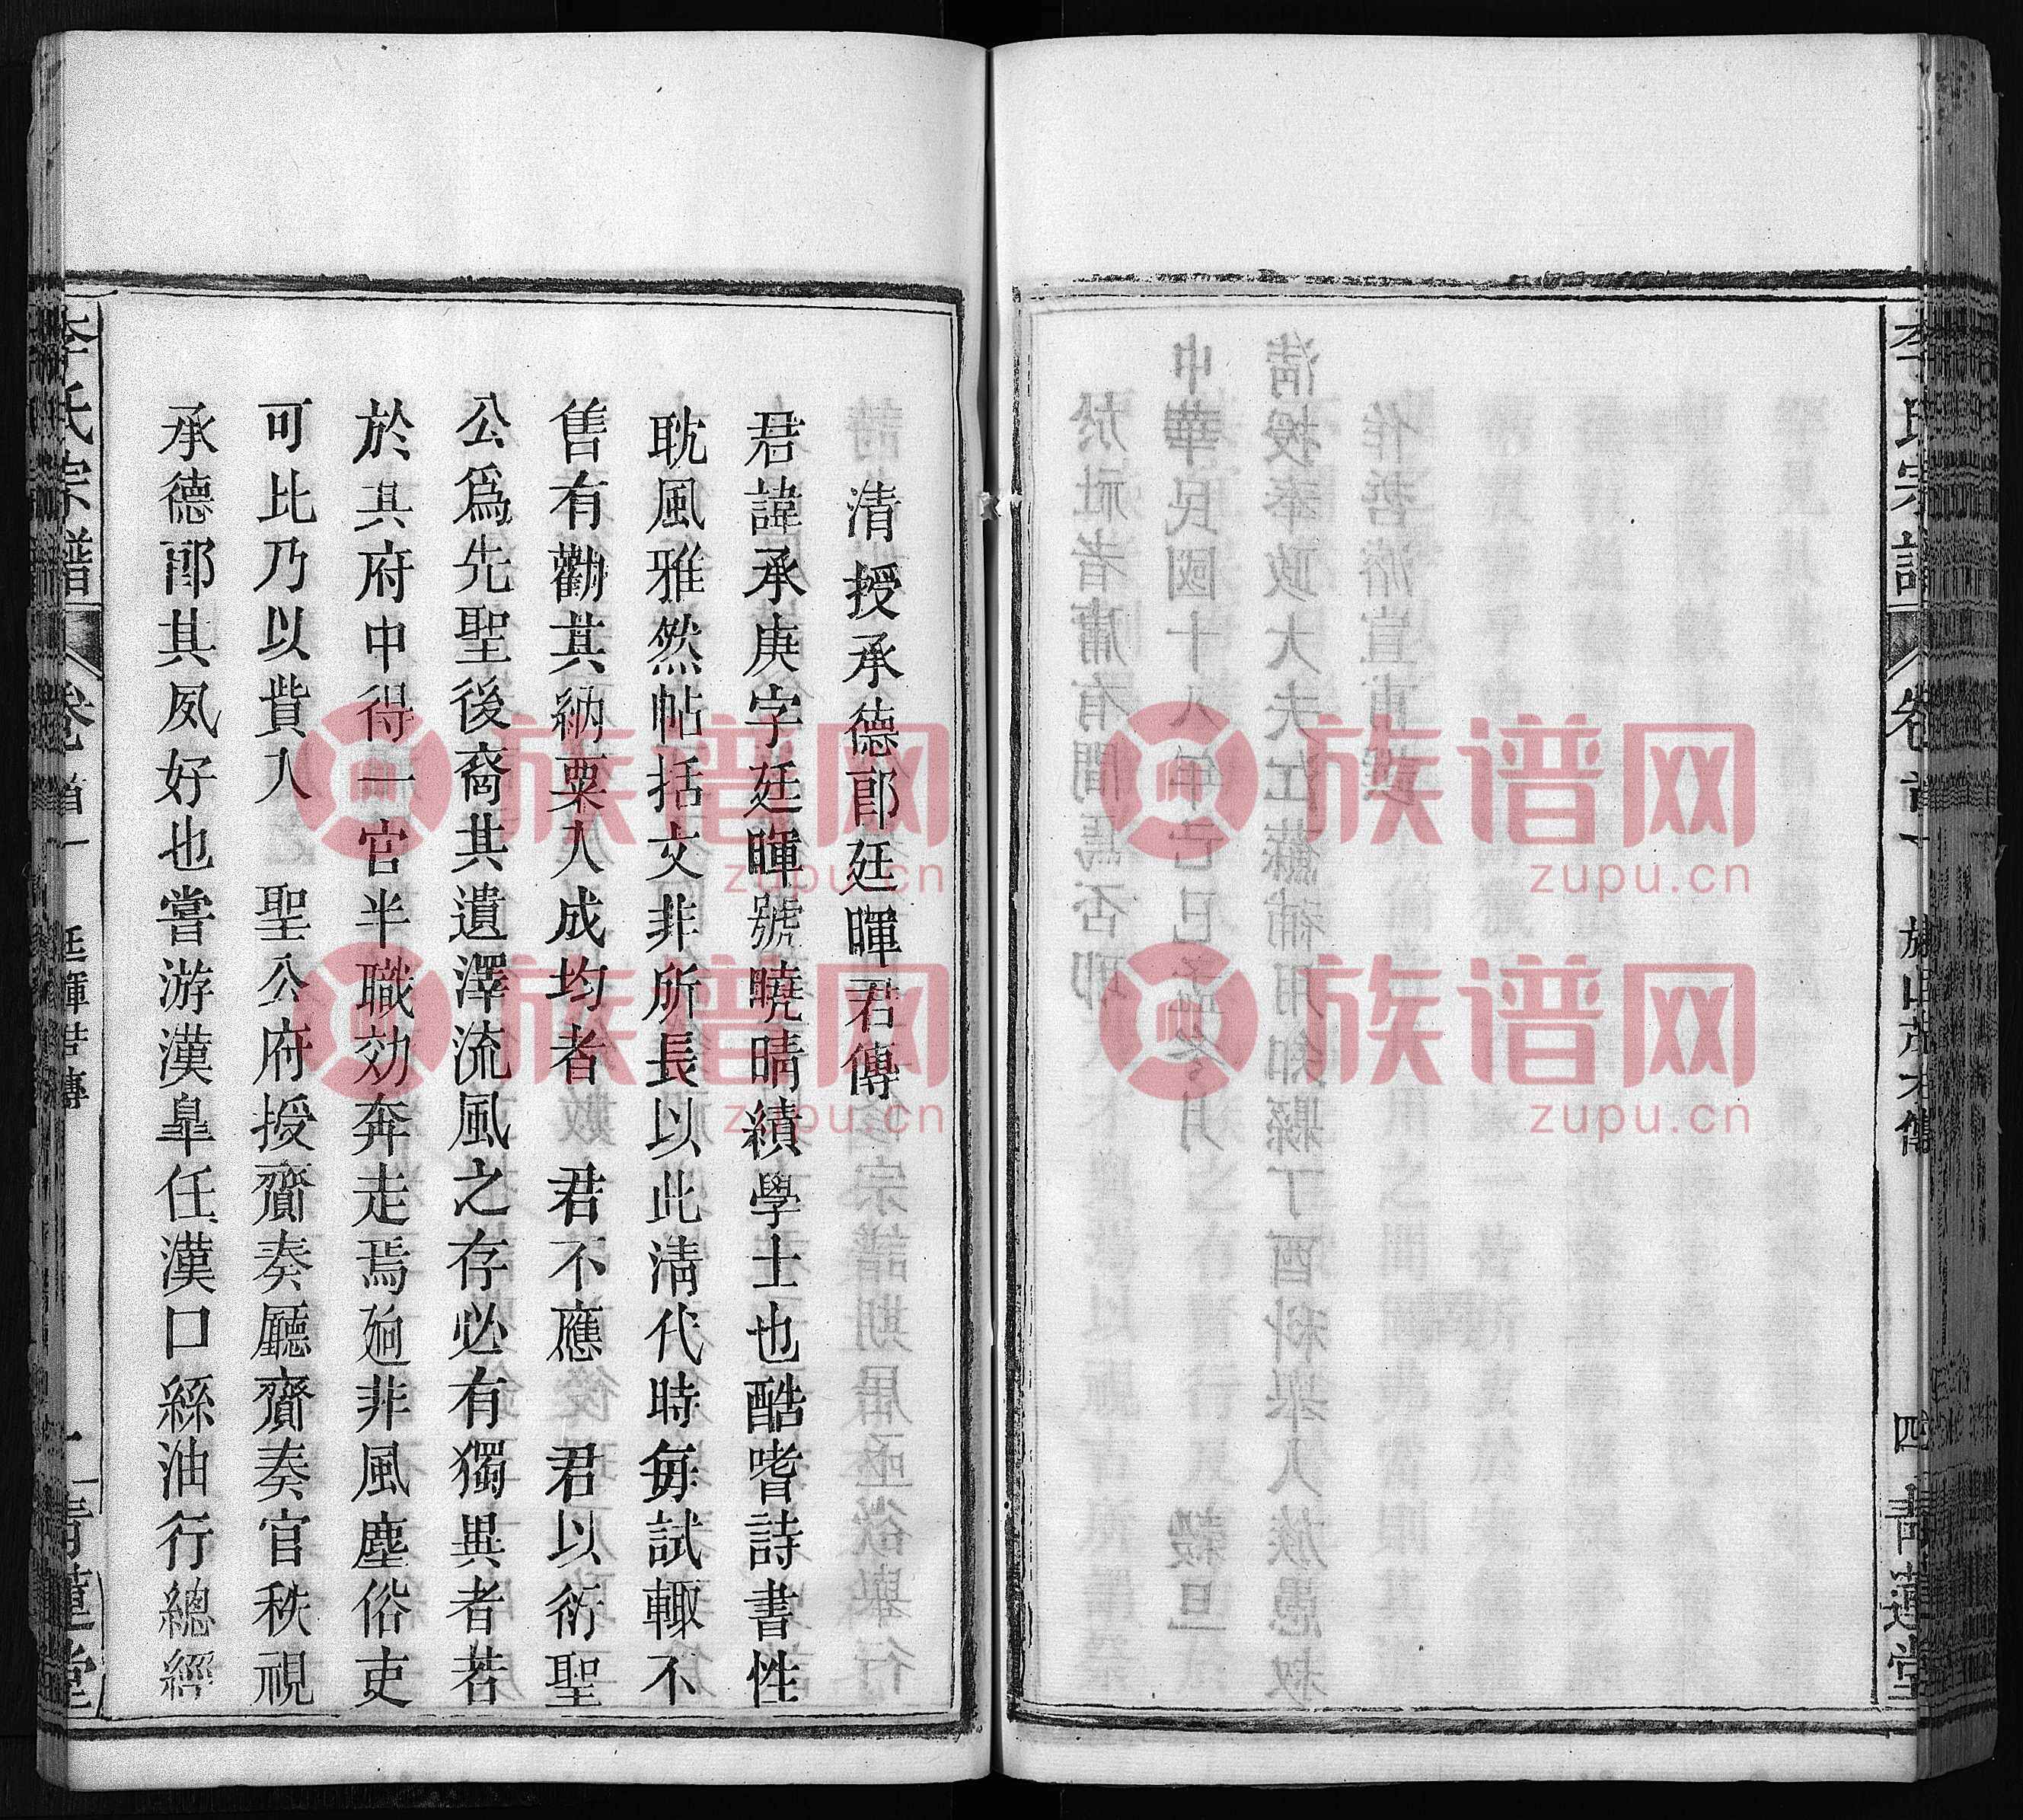 李氏宗譜 卷首一 四 青蓮堂
清授承德郎廷暉君傳
君諱承庚字廷暉號曉晴績學士也酷嗜詩書性
耽風雅然帖括文非所長以此清代時每試輒不
售有勸其納粟入成均者 君不應 君以衍聖
公爲先聖後裔其遺澤流風之存必有獨異者若
於其府中得一官半職効奔走焉逈非風塵俗吏
可比乃以貲入 聖公府授齎奏廳齎奏官秩視
承德郎其夙好也嘗游漢臯任漢口絲油行總經
李氏宗譜 卷首一 廷暉君傳 一 青蓮堂
族谱网
zupu.cn
族谱网
zupu.cn
族谱网
zupu.cn
族谱网
zupu.cn